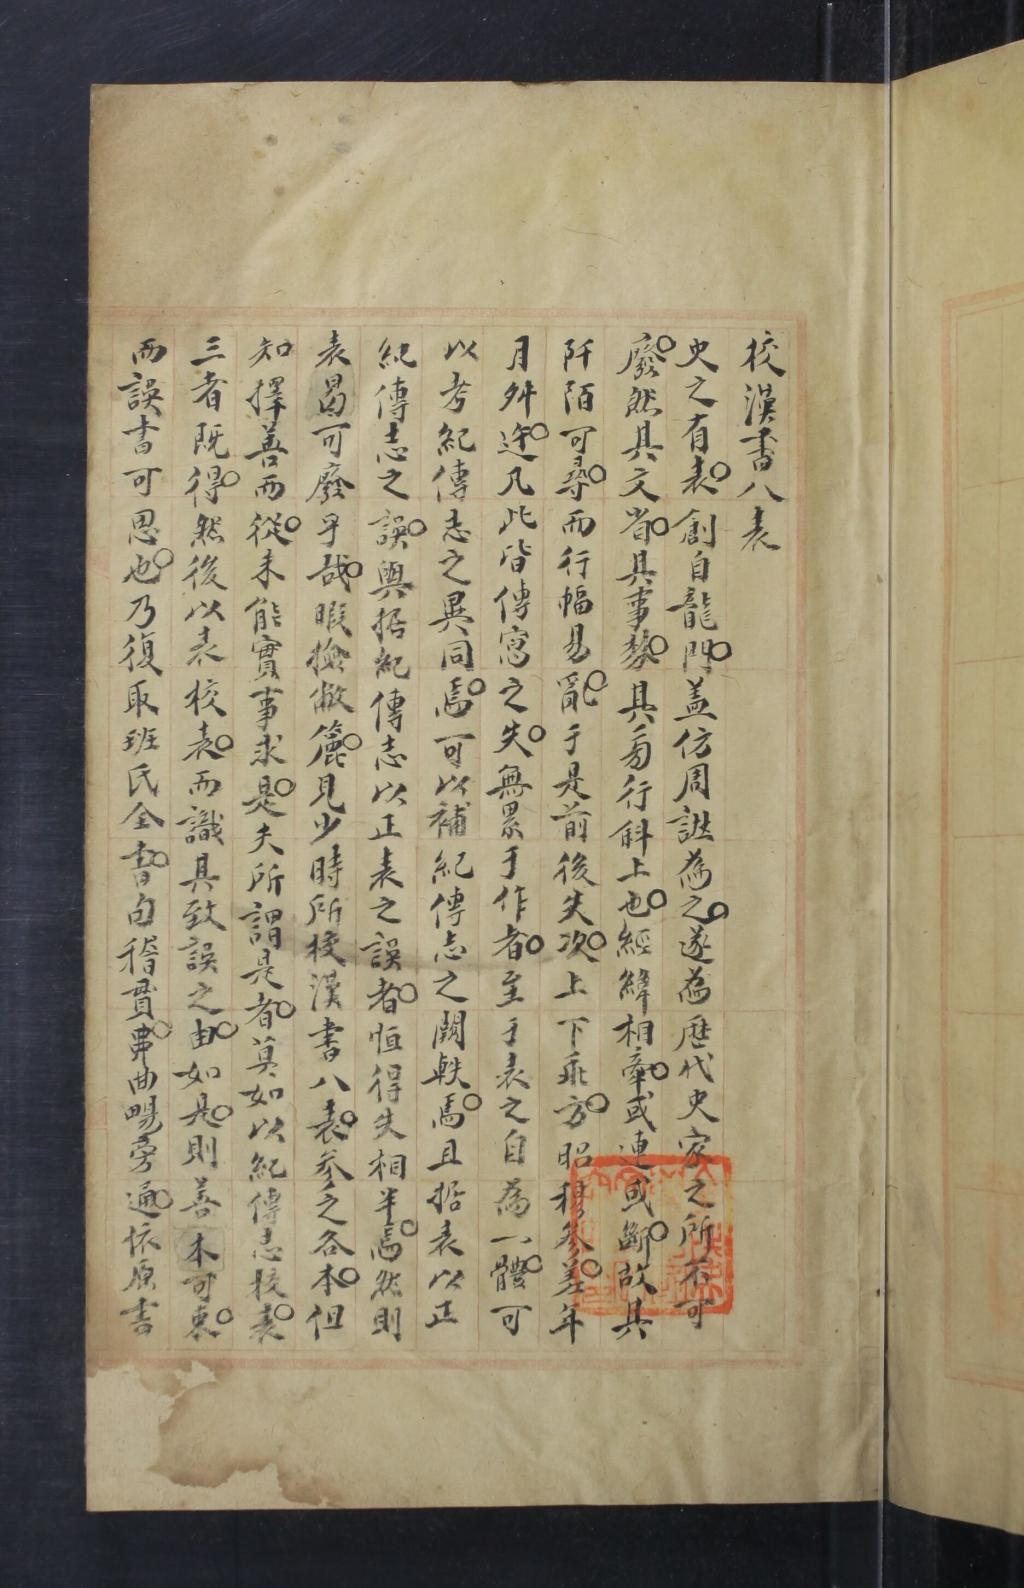 校漢書八表
史之有表創自龍門蓋仿周譜為之遂為歷代史家之所不可
廢然其文省其事繁其旁行斜上也經緯相牽或連或斷故其
阡陌可尋而行幅易亂于是前後失次上下乖方昭穆參差年
月舛迕凡此皆傳寫之失無累于作者至于表之自為一體可
以考紀傳志之異同焉可以補紀傳志之闕軼焉且据表以正
紀傳志之誤與据紀傳志以正表之誤者恒得失相半焉然則
表曷可廢乎哉暇撿敝簏見少時所校漢書八表參之各本但
知擇善而從未能實事求是夫所謂是者莫如以紀傳志校表
三者既得然後以表校表而識其致誤之由如是則善本可衷
而誤書可思也乃復取班氏全書句稽貫弗曲暢旁通依原書